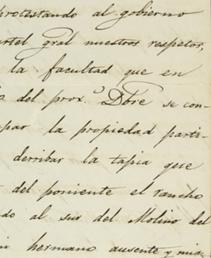 protestando al gobierno
artel gral nuestros respetos,
la facultad que en
o del prox.º Dbre se con-
par la propiedad parti-
derribar la tapia que
del poniente el rancho
do al sur del Molino del
hermano ausente y mia